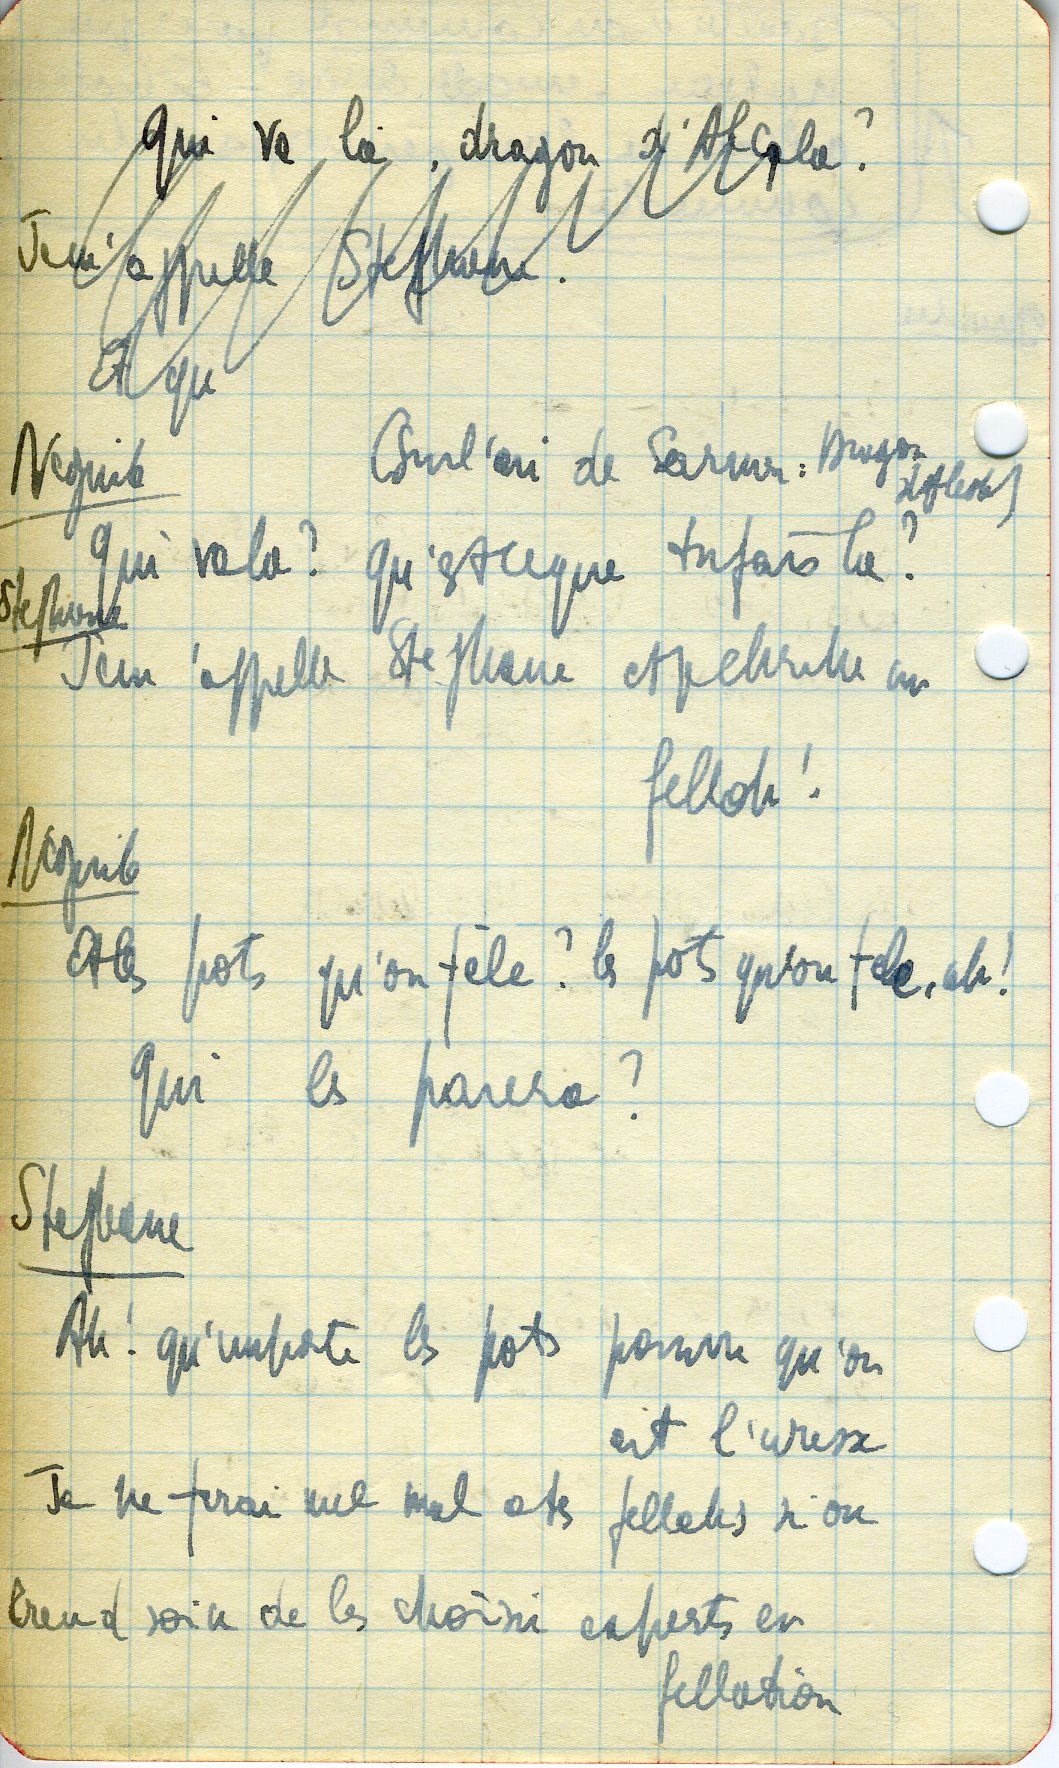 Qui va là, dragon d'Alcala ?
Je m'appelle Stephane.
Et qui
Neguib (Sur l'air de Carmen : Dragon
d'Alcala)
Qui va la ? Qu'est ce que tu fais la ?
Stephane
Je m'appelle Stephane et je cherche un
fellah !
Neguib
Et les pots qu'on fèle ? les pots qu'on fele, ah !
Qui les paiera ?
Stephane
Ah ! qu'importe les pots pourvu qu'on
ait l'ivresse
Je ne ferai nul mal à tes fellahs si on
Prend soin de les choisir experts en
fellation